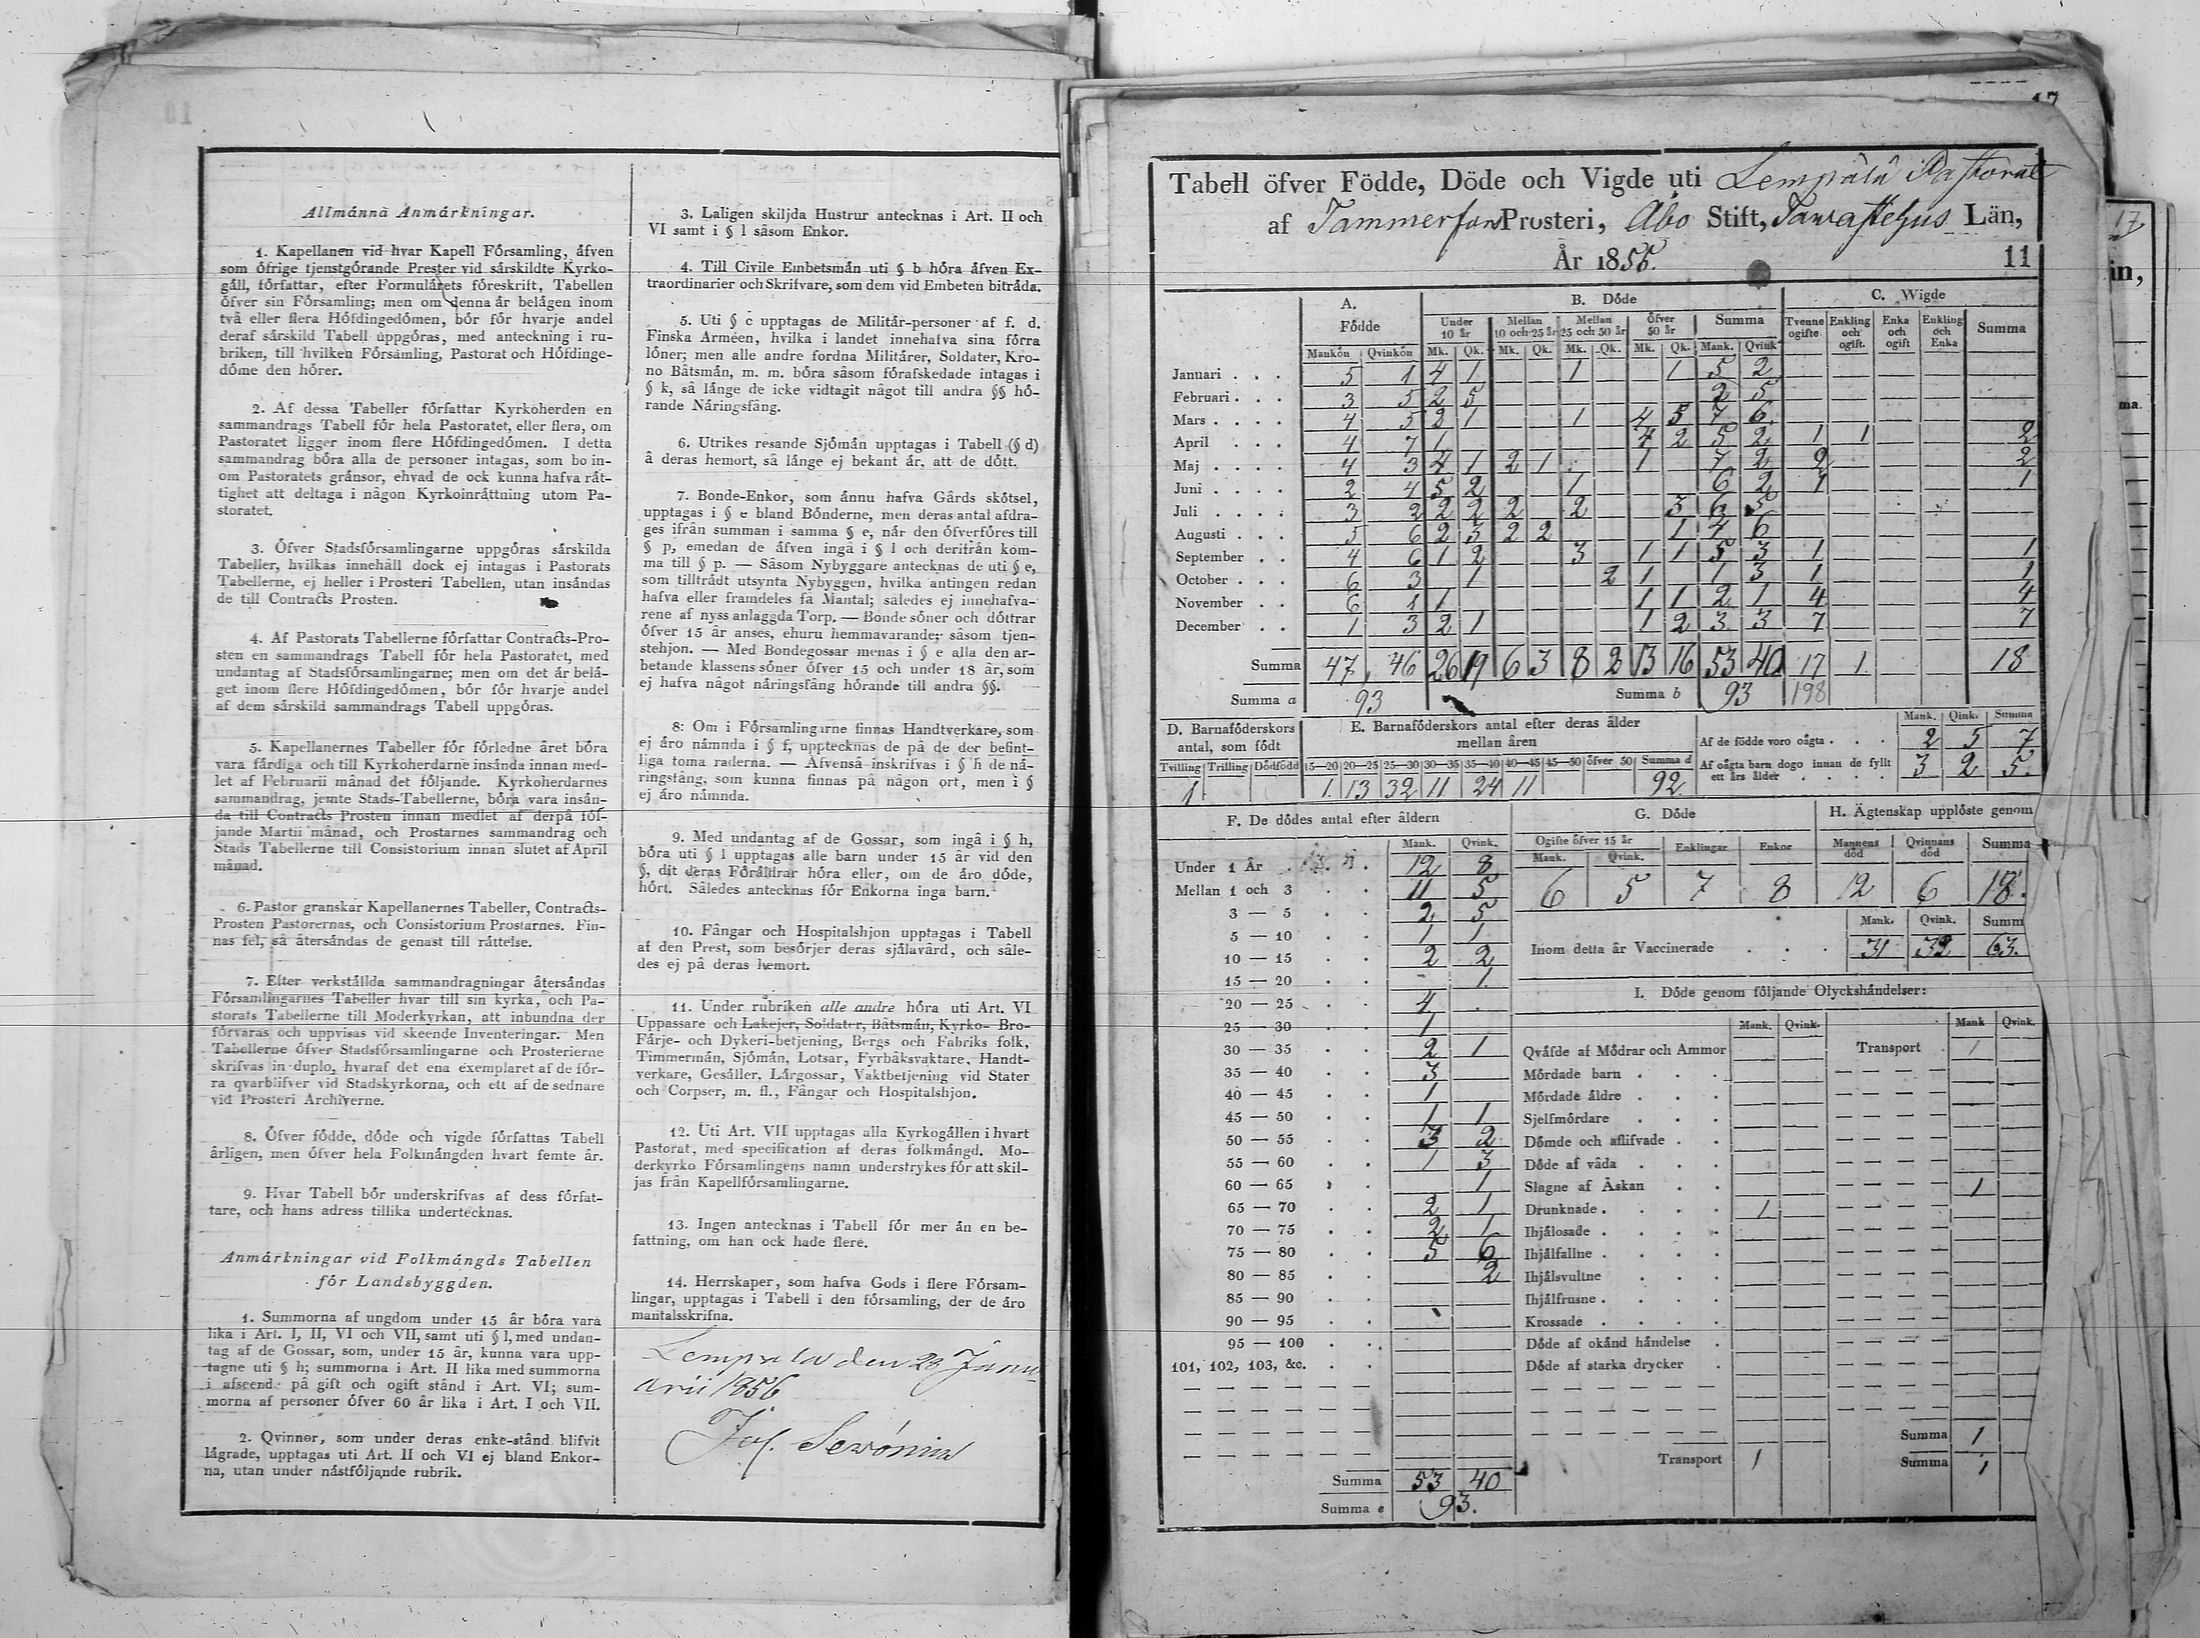 Allmánna Anmárkningar.
1. Kapellanen vid hvar Kapell Fórsamling, áfven
som ófrige tjenstgórande Prester vid sárskildte Kyrko-
gáll, fórfattar, efter Formulárets fóreskrift, Tabellen
ófver sin Fórsamling; men om denna ár belágen inom
två eller flera Hófdingedómen, bór fór hvarje andel
deraf sárskild Tabell uppgóras, med anteckning i ru-
briken, till hvilken Fórsamling, Pastorat och Hófdinge-
dóme den hórer.
2. Af dessa Tabeller fórfattar Kyrkoherden en
sammandrags Tabell fór hela Pastoratet, eller flera, om
Pastoratet ligger inom flere Hófdingedómen. I detta
sammandrag bóra alla de personer intagas, som bo in-
om Pastoratets gránsor, ehvad de ock kunna hafva rát-
tighet att deltaga i någon Kyrkoinráttning utom Pa-
storatet.
3. Ófver Stadsfórsamlingarne uppgóras sárskilda
Tabeller, hvilkas innehåll dock ej intagas i Pastorats
Tabellerne, ej heller i Prosteri Tabellen, utan insándas
de till Contracts Prosten.
4. Af Pastorats Tabellerne fórfattar Contracts-Pro-
sten en sammandrags Tabell fór hela Pastoratet, med
undantag af Stadsfórsamlingarne; men om det ár belá-
get inom flere Hófdingedómen, bór fór hvarje andel
af dem sárskild sammandrags Tabell uppgóras.
5. Kapellanernes Tabeller fór fórledne året bóra
vara fárdiga och till Kyrkoherdarne insánda innan med-
let af Februarii månad det fóljande. Kyrkoherdarnes
sammandrag, jemte Stads-Tabellerne, bóra vara insán-
da till Contracts Prosten innan medlet af derpå fól-
jande Martii månad, och Prostarnes sammandrag och
Stads Tabellerne till Consistorium innan slutet af April
månad.
6. Pastor granskar Kapellanernes Tabeller, Contracts-
Prosten Pastorernas, och Consistorium Prostarnes. Fin-
nas fel, så återsándas de genast till ráttelse.
7. Efter verkstállda sammandragningar återsándas
Fórsamlingarnes Tabeller hvar till sin kyrka, och Pa-
storats Tabellerne till Moderkyrkan, att inbundna der
fórvaras och uppvisas vid skeende Inventeringar. Men
Tabellerne ófver Stadsfórsamlingarne och Prosterierne
skrifvas in duplo, hvaraf det ena exemplaret af de fór-
ra qvarblifver vid Stadskyrkorna, och ett af de sednare
vid Prosteri Archiverne.
8. Ófver fódde, dóde och vigde fórfattas Tabell
årligen, men ófver hela Folkmángden hvart femte år.
9. Hvar Tabell bór underskrifvas af dess fórfat-
tare, och hans adress tillika undertecknas.
Anmárkningar vid Folkmángds Tabellen
fór Landsbyggden.
1. Summorna af ungdom under 15 år bóra vara
lika i Art. I, II, VI och VII, samt uti § l, med undan-
tag af de Gossar, som, under 15 år, kunna vara upp-
tagne uti § h; summorna i Art. II lika med summorna
i afseende på gift och ogift stånd i Art. VI; sum-
morna af personer ófver 60 år lika i Art. I och VII.
2. Qvinnor, som under deras enke-stånd blifvit
lágrade, upptagas uti Art. II och VI ej bland Enkor-
na, utan under nástfóljande rubrik.
3. Laligen skiljda Hustrur antecknas i Art. II och
VI samt i § l såsom Enkor.
4. Till Civile Embetsmán uti § b hóra áfven Ex-
traordinarier och Skrifvare, som dem vid Embeten bitráda.
5. Uti § c upptagas de Militár-personer af f. d.
Finska Arméen, hvilka i landet innehafva sina fórra
lóner; men alle andre fordna Militárer, Soldater, Kro-
no Båtsmán, m. m. bóra såsom fórafskedade intagas i
§ k, så lánge de icke vidtagit något till andra §§ hó-
rande Náringsfång.
6. Utrikes resande Sjómán upptagas i Tabell (§ d)
å deras hemort, så lánge ej bekant ár, att de dótt.
7. Bonde-Enkor, som ánnu hafva Gårds skótsel,
upptagas i § e bland Bónderne, men deras antal afdra-
ges ifrån summan i samma § e, nár den ófverfóres till
§ p, emedan de áfven ingå i § l och derifrån kom-
ma till § p. — Såsom Nybyggare antecknas de uti § e,
som tilltrádt utsynta Nybyggen, hvilka antingen redan
hafva eller framdeles få Mantal; således ej innehafva-
rene af nyss anlaggda Torp. — Bonde sóner och dóttrar
ófver 15 år anses, ehuru hemmavarande, såsom tjen-
stehjon. — Med Bondegossar menas i § e alla den ar-
betande klassens sóner ófver 15 och under 18 år, som
ej hafva något náringsfång hórande till andra §§.
8: Om i Fórsamlingarne finnas Handtverkare, som
ej áro námnda i § f, upptecknas de på de der befint-
liga toma raderna. — Áfvenså inskrifvas i § h de ná-
ringsfång, som kunna finnas på någon ort, men i §
ej áro námnda.
9. Med undantag af de Gossar, som ingå i § h,
bóra uti § l upptagas alle barn under 15 år vid den
§, dit deras Fóráldrar hóra eller, om de áro dóde,
hórt. Således antecknas fór Enkorna inga barn.
10. Fångar och Hospitalshjon upptagas i Tabell
af den Prest, som besórjer deras sjálavård, och såle-
des ej på deras hemort.
11. Under rubriken alle andre hóra uti Art. VI
Uppassare och Lakejer, Soldater, Båtsmán, Kyrko- Bro-
Fárje- och Dykeri-betjening, Bergs och Fabriks folk,
Timmermán, Sjómán, Lotsar, Fyrbåksvaktare, Handt-
verkare, Gesáller, Lárgossar, Vaktbetjening vid Stater
och Corpser, m. fl., Fångar och Hospitalshjon.
12. Uti Art. VII upptagas alla Kyrkogállen i hvart
Pastorat, med specification af deras folkmángd. Mo-
derkyrko Fórsamlingens namn understrykes fór att skil-
jas från Kapellfórsamlingarne.
13. Ingen antecknas i Tabell fór mer án en be-
fattning, om han ock hade flere.
14. Herrskaper, som hafva Gods i flere Fórsam-
lingar, upptagas i Tabell i den fórsamling, der de áro
mantalsskrifna.
Lempala den 23 Janu
arii 1856
17
Tabell öfver Födde, Döde och Vigde uti Lempälä Pastorat
af Tammerfors Prosteri, Åbo Stift, Tavastehus Län,
År 1855. 11
A. B. Dóde C. Wigde
Fódde Under 10 år Mellan 10 och 25 år Mellan 25 och 50 år Ófver 50 år Summa Tvenne ogifte Enkling och ogift. Enka och ogift Enkling och Enka Summa
Mankón Qvinkón Mk. Qk. Mk. Qk. Mk. Qk. Mk. Qk. Mank. Qvink
Januari 5 1 4 1 1 1 5 2
Februari 3 5 2 5 2 5
Mars 4 5 2 1 1 4 5 7 6
April 4 7 1 4 2 5 2 1 1 2
Maj 4 3 4 1 2 1 1 7 2 2 2
Juni 2 4 5 2 1 6 2 1 1
Juli 3 2 2 2 2 2 3 6 5
Augusti 5 6 2 3 2 2 1 4 6
September 4 6 1 2 3 1 1 5 3 1 1
October 6 3 1 2 1 1 3 1 1
November 6 1 1 1 1 2 1 4 4
December 1 3 2 1 1 2 3 3 7 7
Summa 47 46 26 19 6 3 8 2 13 16 53 40 17 1 18
Summa a 93 Summa b 93 198
D. Barnafóderskors antal, som fódt
E. Barnafóderskors antal efter deras ålder mellan åren
Mank. Qink. Summa
Af de födde voro oägta 2 5 7
Af oägta barn dogo innan de fyllt ett års ålder 3 2 5
Tvilling Trilling Dódfódd 15—20 20—25 25—30 30—35 35—40 40—45 45—50 ófver 50 Summa d
1 1 13 32 11 24 11 92
F. De dódes antal efter åldern
Mank. Qvink.
Under 1 År 12 8
Mellan 1 och 3 11 5
3 — 5 2 5
5 — 10 1 1
10 — 15 2 2
15 — 20 1
20 — 25 4
25 — 30 1
30 — 35 2 1
35 — 40 3
40 — 45 1
45 — 50 1 1
50 — 55 3 2
55 — 60 1 3
60 — 65 1
65 — 70 2 1
70 — 75 2 1
75 — 80 5 6
80 — 85 2
85 — 90
90 — 95
95 — 100
101, 102, 103, &c.
Summa 53 40
Summa e 93.
G. Dóde H. Ägtenskap upplóste genom
Ogifte ófver 15 år Enklingar Enkor Mannens dód Qvinnans dód Summa
Mank. Qvink.
6 5 7 8 12 6 18
Mank. Qvink. Summ
Inom detta år Vaccinerade 31 32 63
I. Dóde genom fóljande Olyckshándelser:
Mank. Qvink. Mank Qvink.
Qváfde af Módrar och Ammor Transport 1
Mórdade barn
Mórdade áldre
Sjelfmórdare
Dómde och aflifvade
Dóde af våda
Slagne af Åskan 1
Drunknade 1
Ihjálosade
Ihjálfallne
Ihjálsvultne
Ihjálfrusne
Krossade
Dóde af okánd hándelse
Dóde af starka drycker
Summa 1
Transport 1 Summa 1
17
in,
ma.